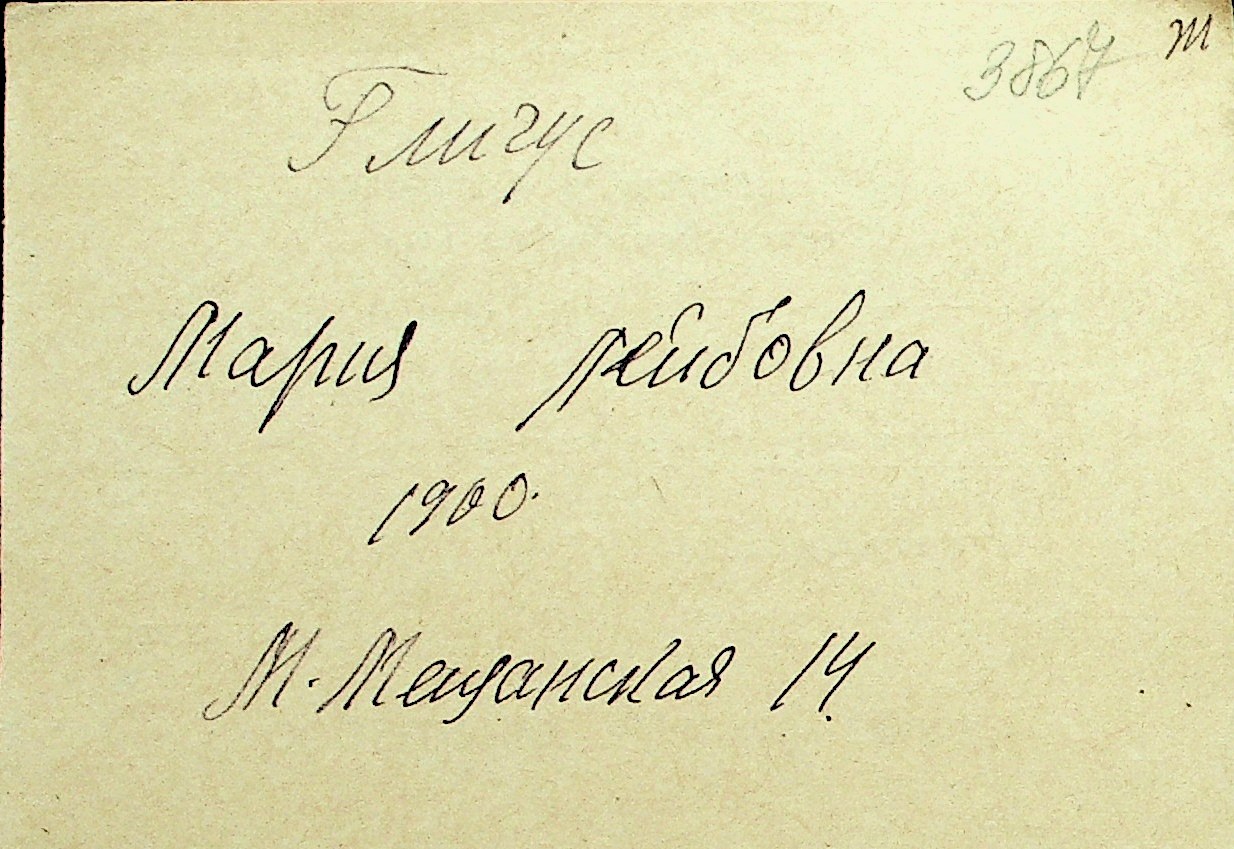 3867 т
Гличус
Мария Лейбовна
1900.
М. Мещанская 14.